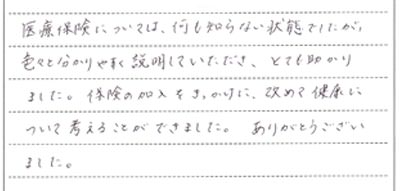 医療保険については、何も知らない状態でしたが、
色々と分かりやすく説明していただき、とても助かり
ました。保険の加入をきっかけに、改めて健康に
ついて考えることができました。ありがとうござい
ました。